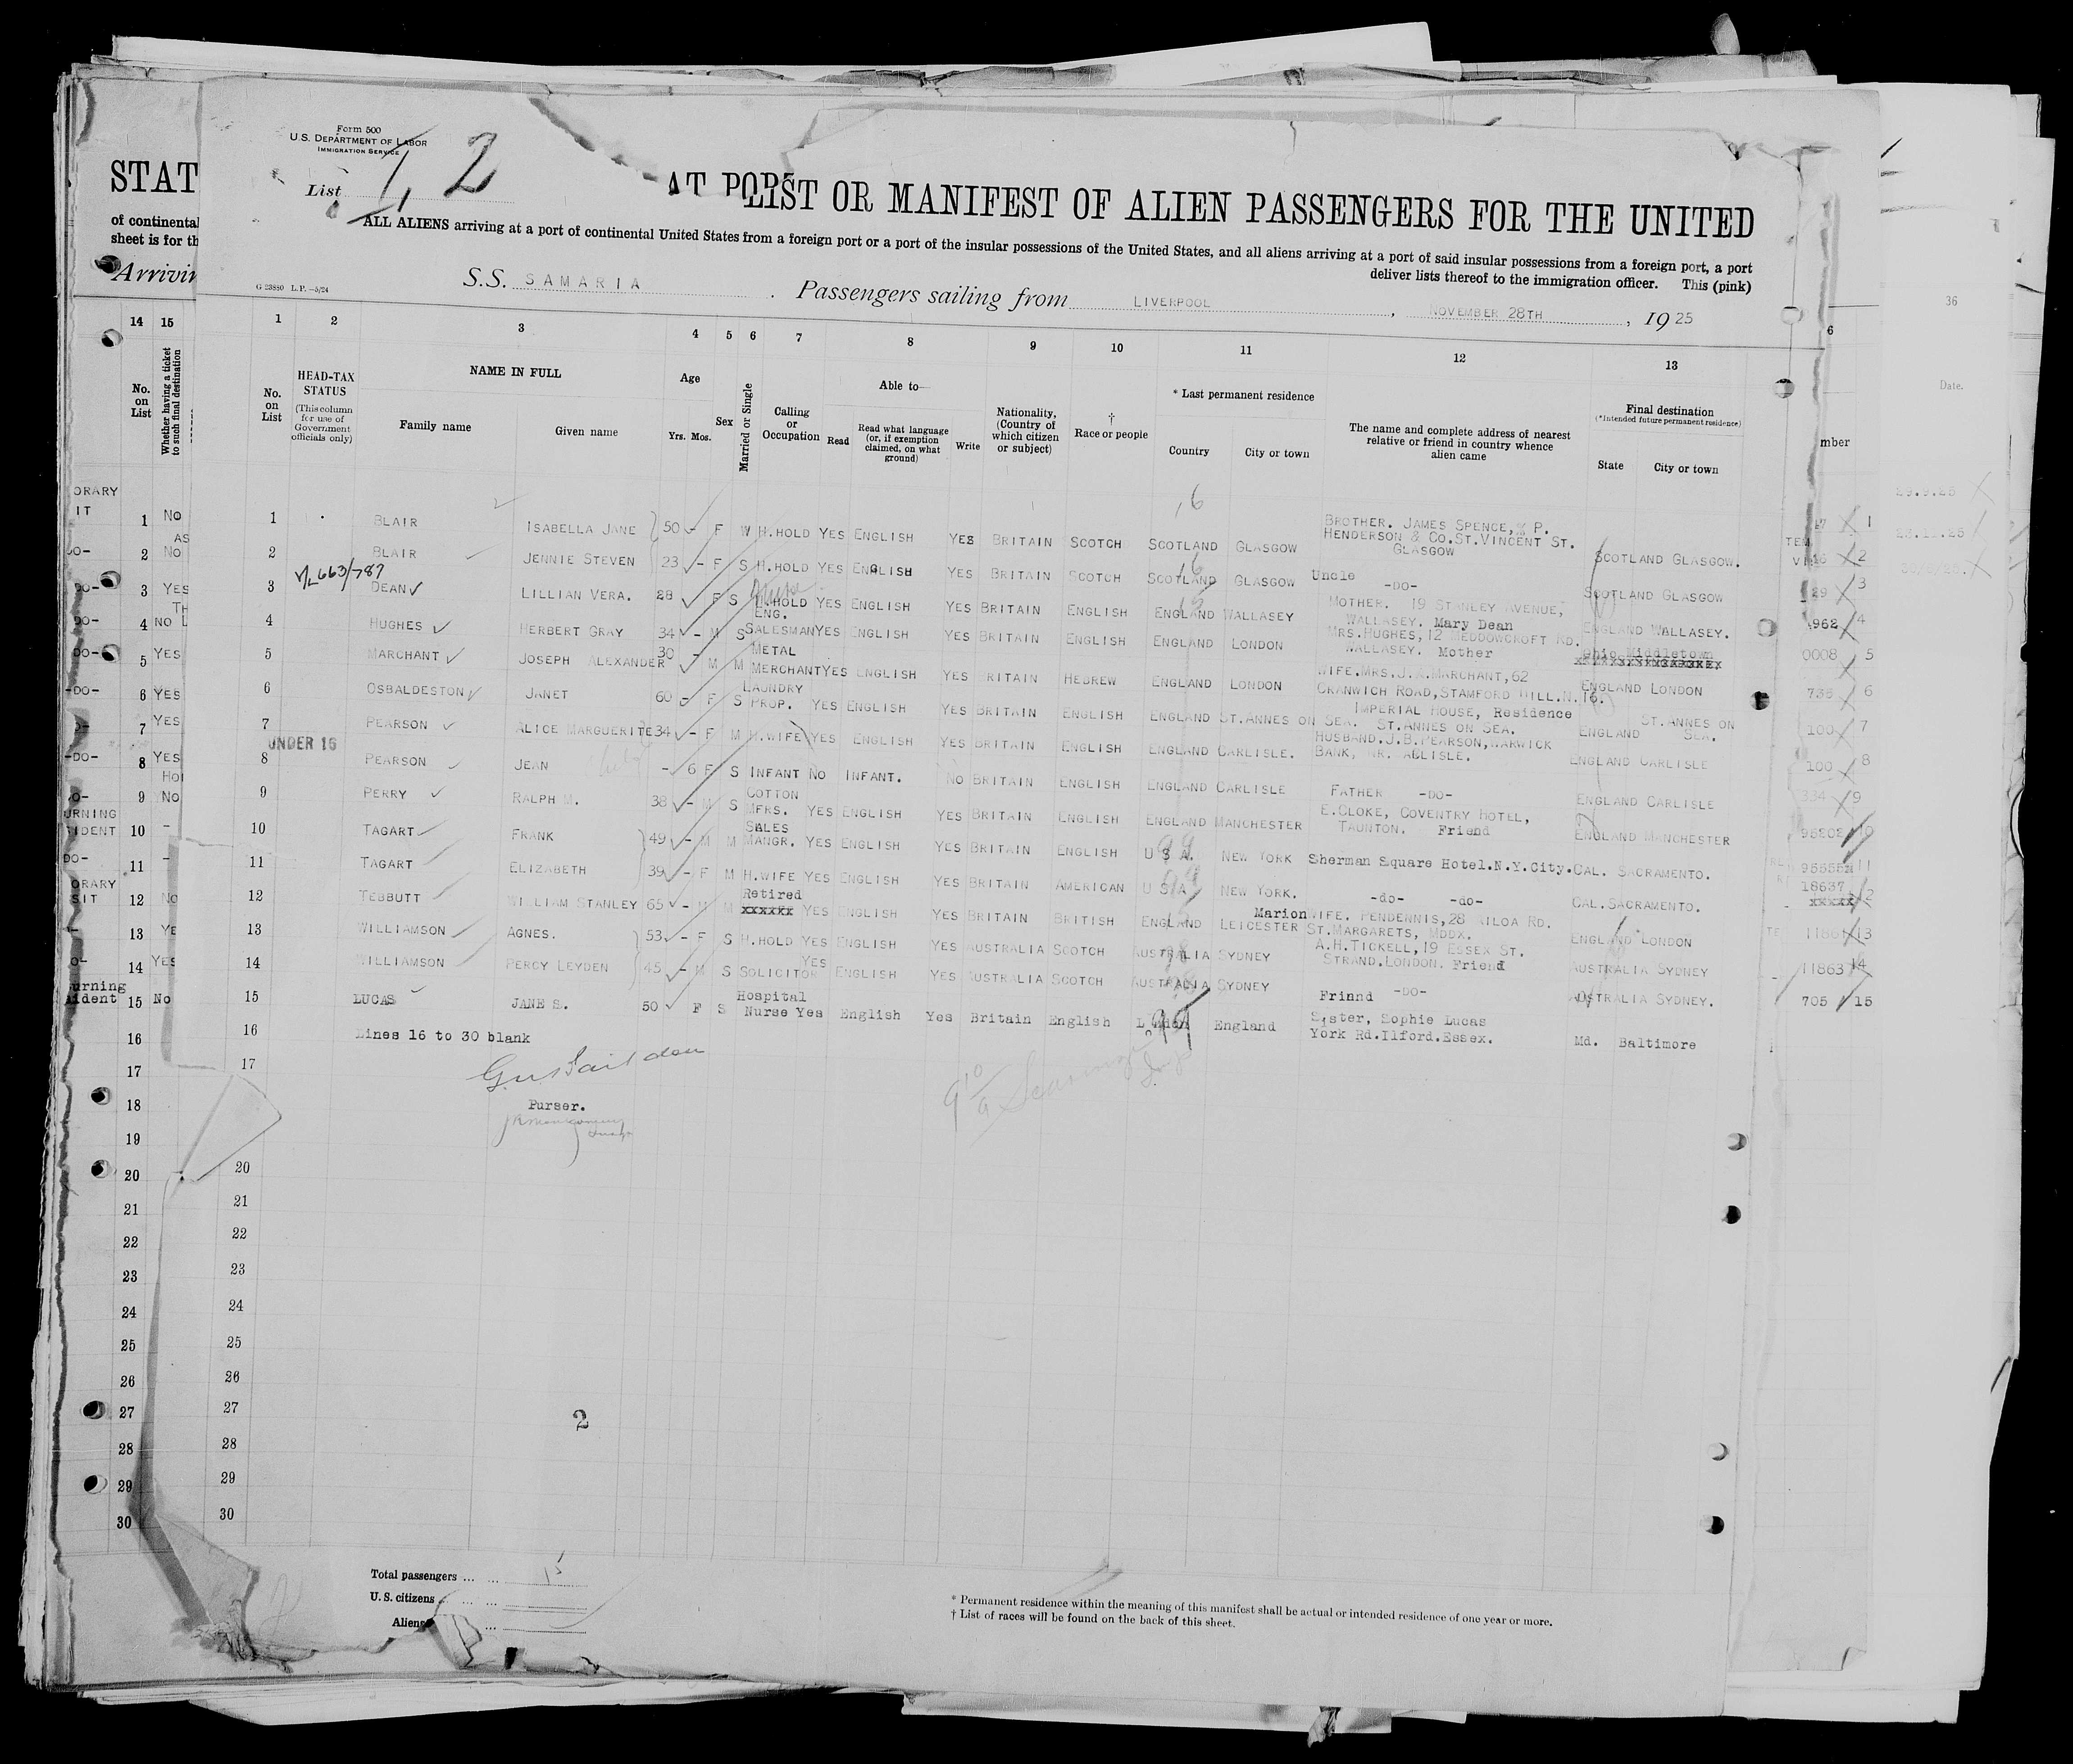 Form 500
U.S. DEPARTMENT OF LABOR
IMMIGRATION SERVICE
List 1, 2
STAT
AT PORST OR MANIFEST OF ALIEN PASSENGERS FOR THE UNITED
of continental
sheet is for th
ALL ALIENS arriving at a port of continental United States from a foreign port or a port of the insular possessions of the United States, and all aliens arriving at a port of said insular possessions from a foreign port, a port
deliver lists thereof to the immigration officer. This (pink)
Arrivin
G 23880 L.P.—5/24
S.S. SAMARIA
Passengers sailing from LIVERPOOL, NOVEMBER 28TH, 1925
36
14 15 1 2 3 4 5 6 7 8 9 10 11 12 13 6
No. on List
Whether having a ticket to such final destination
No. on List
HEAD-TAX STATUS
(This column for use of Government officials only)
NAME IN FULL
Family name
Given name
Age
Yrs. Mos.
Sex
Married or Single
Calling or Occupation
Able to—
Read
Read what language (or, if exemption claimed, on what ground)
Write
Nationality, (Country of which citizen or subject)
† Race or people
* Last permanent residence
Country
City or town
The name and complete address of nearest relative or friend in country whence alien came
Final destination
(*Intended future permanent residence)
State
City or town
mber
Date.
1 BLAIR ISABELLA JANE 50 - F W H.HOLD YES ENGLISH YES BRITAIN SCOTCH SCOTLAND GLASGOW BROTHER. JAMES SPENCE,% P. HENDERSON & CO.ST.VINCENT ST. GLASGOW SCOTLAND GLASGOW.
2 BLAIR JENNIE STEVEN 23 - F S H.HOLD YES ENGLISH YES BRITAIN SCOTCH SCOTLAND GLASGOW Uncle -DO- SCOTLAND GLASGOW
V/L 663/787
3 DEAN LILLIAN VERA. 28 F S H.HOLD YES ENGLISH YES BRITAIN ENGLISH ENGLAND WALLASEY MOTHER. 19 STANLEY AVENUE, WALLASEY. Mary Dean ENGLAND WALLASEY.
4 HUGHES HERBERT GRAY 34 - M S ENG. SALESMAN YES ENGLISH YES BRITAIN ENGLISH ENGLAND LONDON MRS.HUGHES,12 MEDDOWCROFT RD. WALLASEY. Mother Ohio Middletown
5 MARCHANT JOSEPH ALEXANDER 30 - M M METAL MERCHANT YES ENGLISH YES BRITAIN HEBREW ENGLAND LONDON WIFE.MRS.J.A.MARCHANT,62 CRANWICH ROAD,STAMFORD HILL.N.16. ENGLAND LONDON
6 OSBALDESTON JANET 60 - F S LAUNDRY PROP. YES ENGLISH YES BRITAIN ENGLISH ENGLAND ST.ANNES ON SEA. IMPERIAL HOUSE, Residence ST.ANNES ON SEA. ENGLAND ST.ANNES ON SEA.
7 PEARSON ALICE MARGUERITE 34 - F M H.WIFE YES ENGLISH YES BRITAIN ENGLISH ENGLAND CARLISLE. HUSBAND.J.B.PEARSON,WARWICK BANK, NR. CARLISLE. ENGLAND CARLISLE
UNDER 16
8 PEARSON JEAN - 6 F S INFANT NO INFANT. NO BRITAIN ENGLISH ENGLAND CARLISLE FATHER -DO- ENGLAND CARLISLE
9 PERRY RALPH M. 38 - M S COTTON MFRS. YES ENGLISH YES BRITAIN ENGLISH ENGLAND MANCHESTER E.CLOKE, COVENTRY HOTEL, TAUNTON. Friend ENGLAND MANCHESTER
10 TAGART FRANK 49 - M M SALES MANGR. YES ENGLISH YES BRITAIN ENGLISH U S A. NEW YORK Sherman Square Hotel.N.Y.City. CAL. SACRAMENTO.
11 TAGART ELIZABETH 39 - F M H.WIFE YES ENGLISH YES BRITAIN AMERICAN U S A NEW YORK. -do- -do- CAL.SACRAMENTO.
12 TEBBUTT WILLIAM STANLEY 65 - M M Retired xxxxxx YES ENGLISH YES BRITAIN BRITISH ENGLAND LEICESTER Marion WIFE. PENDENNIS,28 AILOA RD. ST.MARGARETS, MDDX. ENGLAND LONDON
13 WILLIAMSON AGNES. 53 - F S H.HOLD YES ENGLISH YES AUSTRALIA SCOTCH AUSTRALIA SYDNEY A.H.TICKELL,19 ESSEX ST. STRAND.LONDON. Friend AUSTRALIA SYDNEY
14 WILLIAMSON PERCY LEYDEN 45 - M S SOLICITOR YES ENGLISH YES AUSTRALIA SCOTCH AUSTRALIA SYDNEY Frinnd -DO- AUSTRALIA SYDNEY.
15 LUCAS JANE S. 50 F S Hospital Nurse Yes English Yes Britain English London England Sister, Sophie Lucas York Rd.Ilford.Essex. Md. Baltimore
16 Lines 16 to 30 blank
17
Purser.
20
21
22
23
24
25
26
27
2
28
29
30
Total passengers ... ... 15
U.S. citizens ... ...
Aliens ...
* Permanent residence within the meaning of this manifest shall be actual or intended residence of one year or more.
† List of races will be found on the back of this sheet.